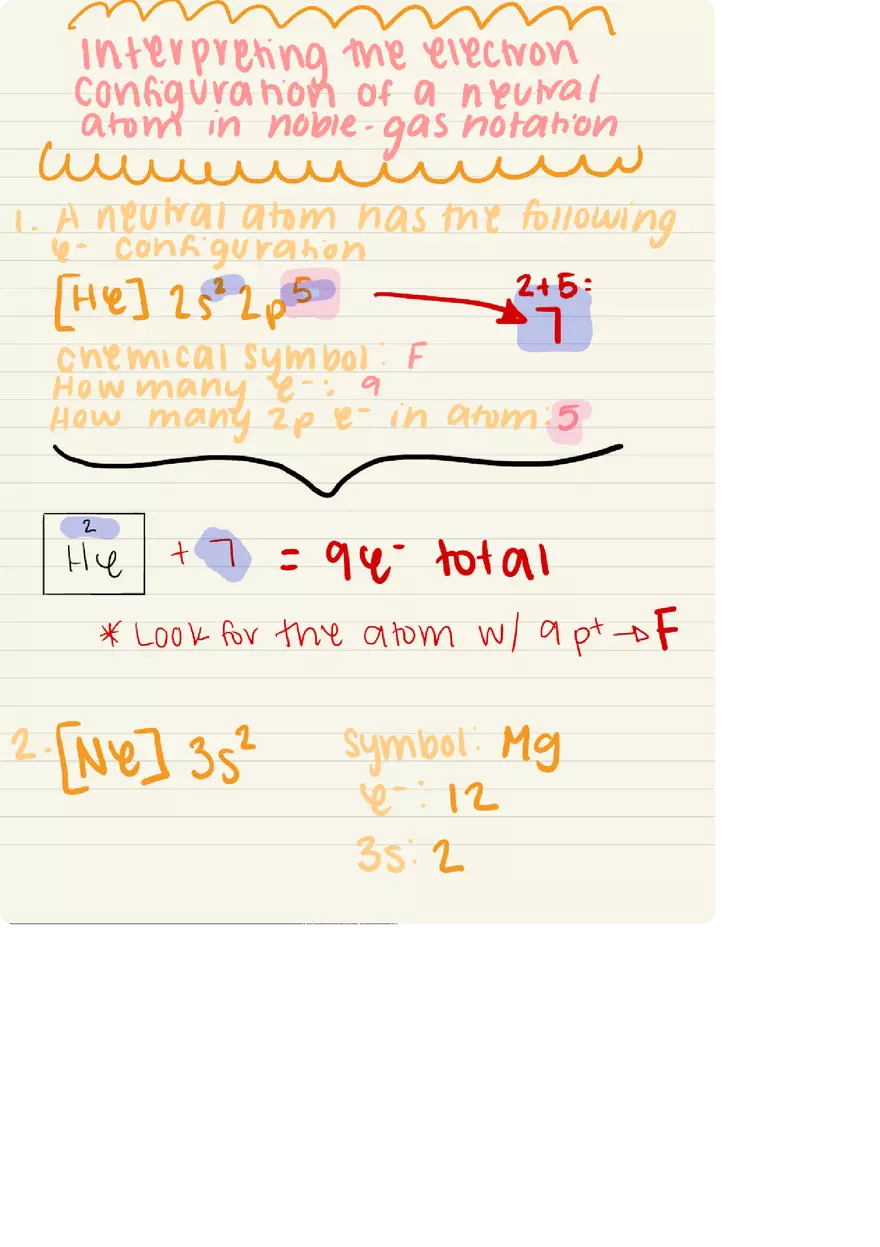 Interpreting the electron
configuration of a neutral
atom in noble-gas notation
1. A neutral atom has the following
e- configuration
[He] 2s² 2p⁵
2+5:
7
chemical symbol: F
How many e-: 9
How many 2p e- in atom: 5
2
He + 7 = 9e- total
* Look for the atom w/ 9 p+ → F
2. [Ne] 3s²
symbol: Mg
e-: 12
3s: 2